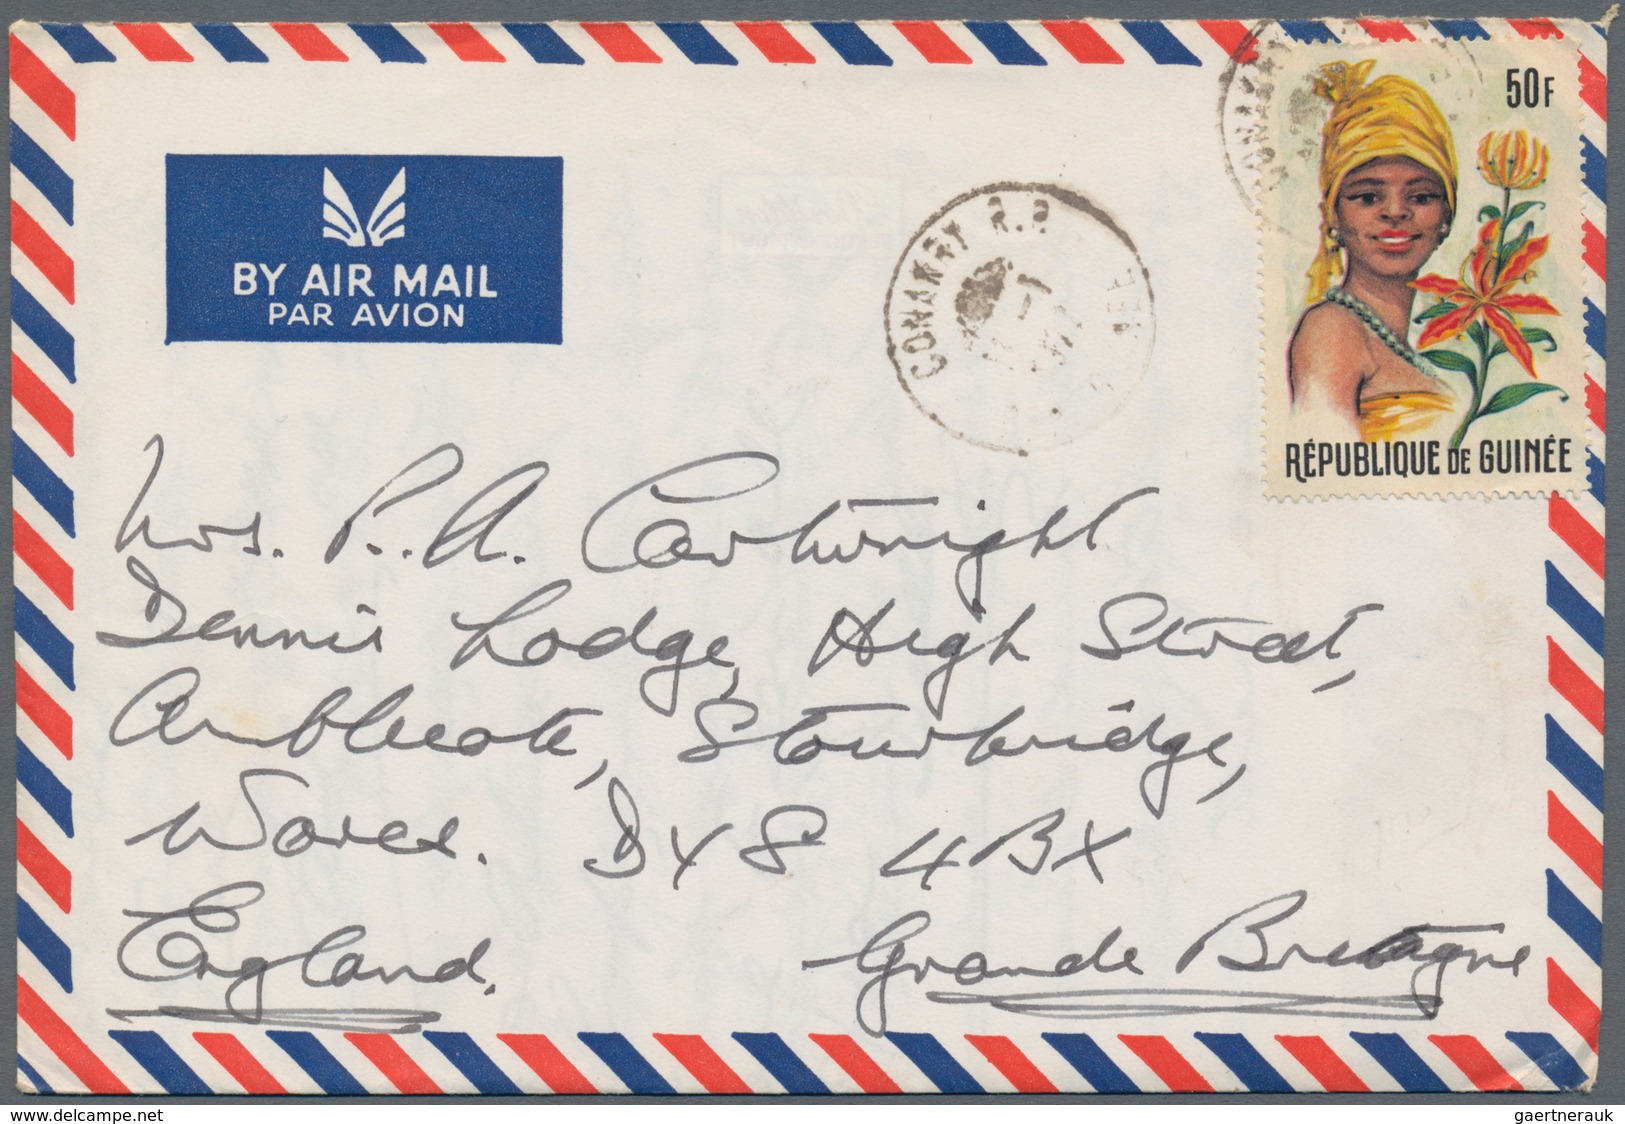 50F
BY AIR MAIL
PAR AVION
CONAKRY R.P.
RÉPUBLIQUE DE GUINÉE
Mrs. P. A. Cartwright
Dennis Lodge, High Street,
Amblecote, Stourbridge,
Worcs. DY8 4BX
England.
Grande Bretagne
gaertnerauk
delcampe.net